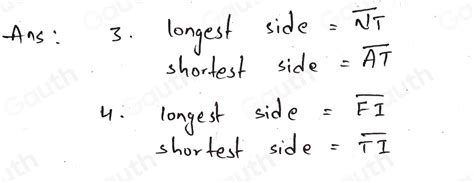 Ans: 3. longest side = N̅T̅
shortest side = A̅T̅
4. longest side = F̅I̅
shortest side = T̅I̅